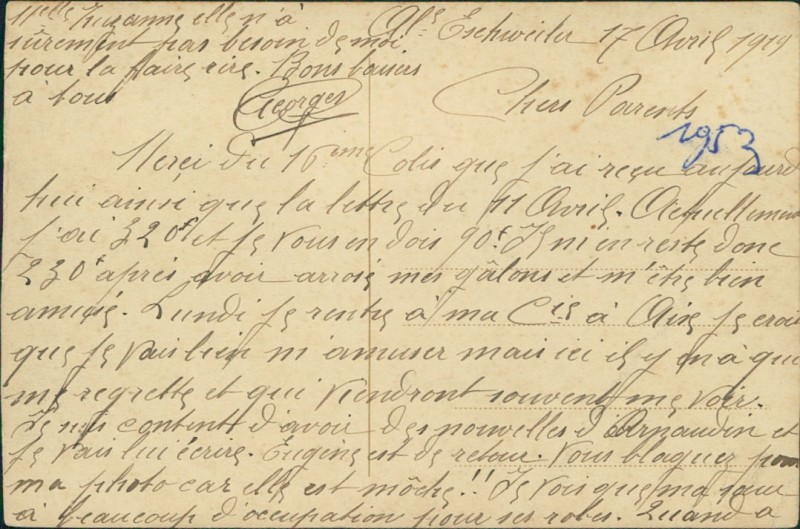 Gls Eschweiler 17 Avril 1919
Chers Parents
1953
Merçi du 16ème Colis que j'ai reçu aujourd
hui ainsi que la lettre du 11 Avril. Actuellement
j'ai 320f et je vous en dois 90f. Il m'en reste donc
230f après avoir arrosé mes gâlons et m'être bien
amusé. Lundi je rentre à ma Cie à Aix je crois
que je vais bien m'amuser mais ici il y en à qui
me regrette et qui viendront souvent me voir.
Je suis content d'avoir des nouvelles d'Arnaudin et
je vais lui écrire. Eugène est de retour. Vous blaguez pour
ma photo car elle est môche!! Je vois que ma sœur
à beaucoup d'occupation pour ses robes. Quand a
Melle Suzanne elle n'à
sûrement pas besoin de moi
pour la faire rire. Bons baisers
à tous
Georges